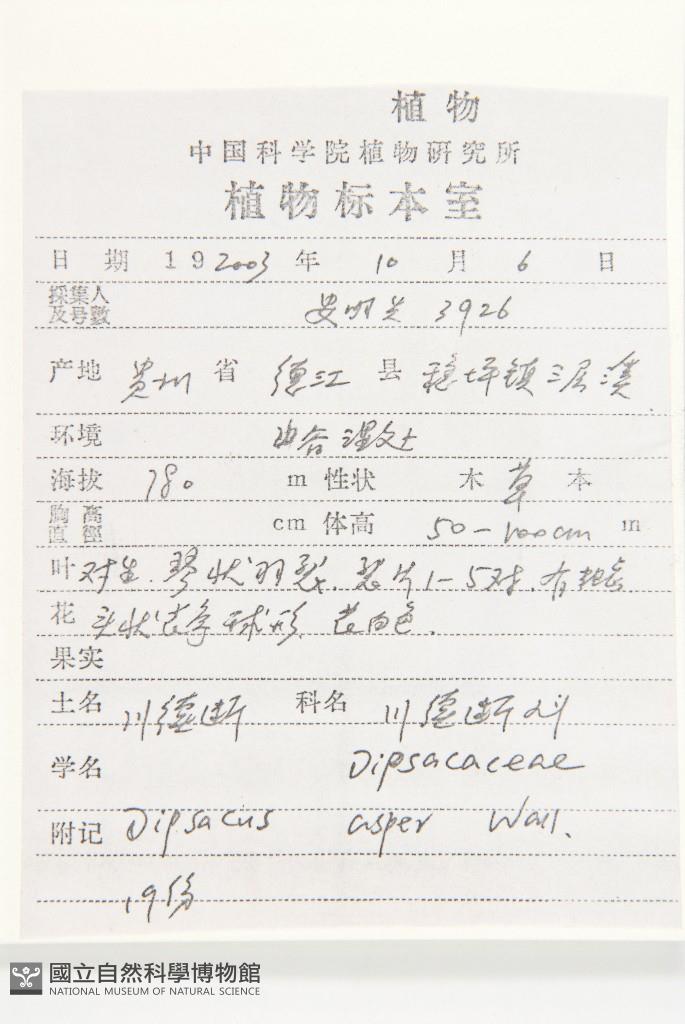 植物
中国科学院植物研究所
植物标本室
日 期 19 2003 年 10 月 6 日
採集人
及号數 安明先 3926
产地 贵州 省 德江 县 稳坪镇三层溪
环境 山谷湿处
海拔 780 m 性状 木 草 本
胸高
直徑 cm 体高 50-100cm m
叶 对生.琴状羽裂.裂片1-5对.有
花 头状花序球形.花白色.
果实
土名 川德断 科名 川德断科
学名 Dipsacaceae
附记 Dipsacus asper Wall.
19份
國立自然科學博物館
NATIONAL MUSEUM OF NATURAL SCIENCE